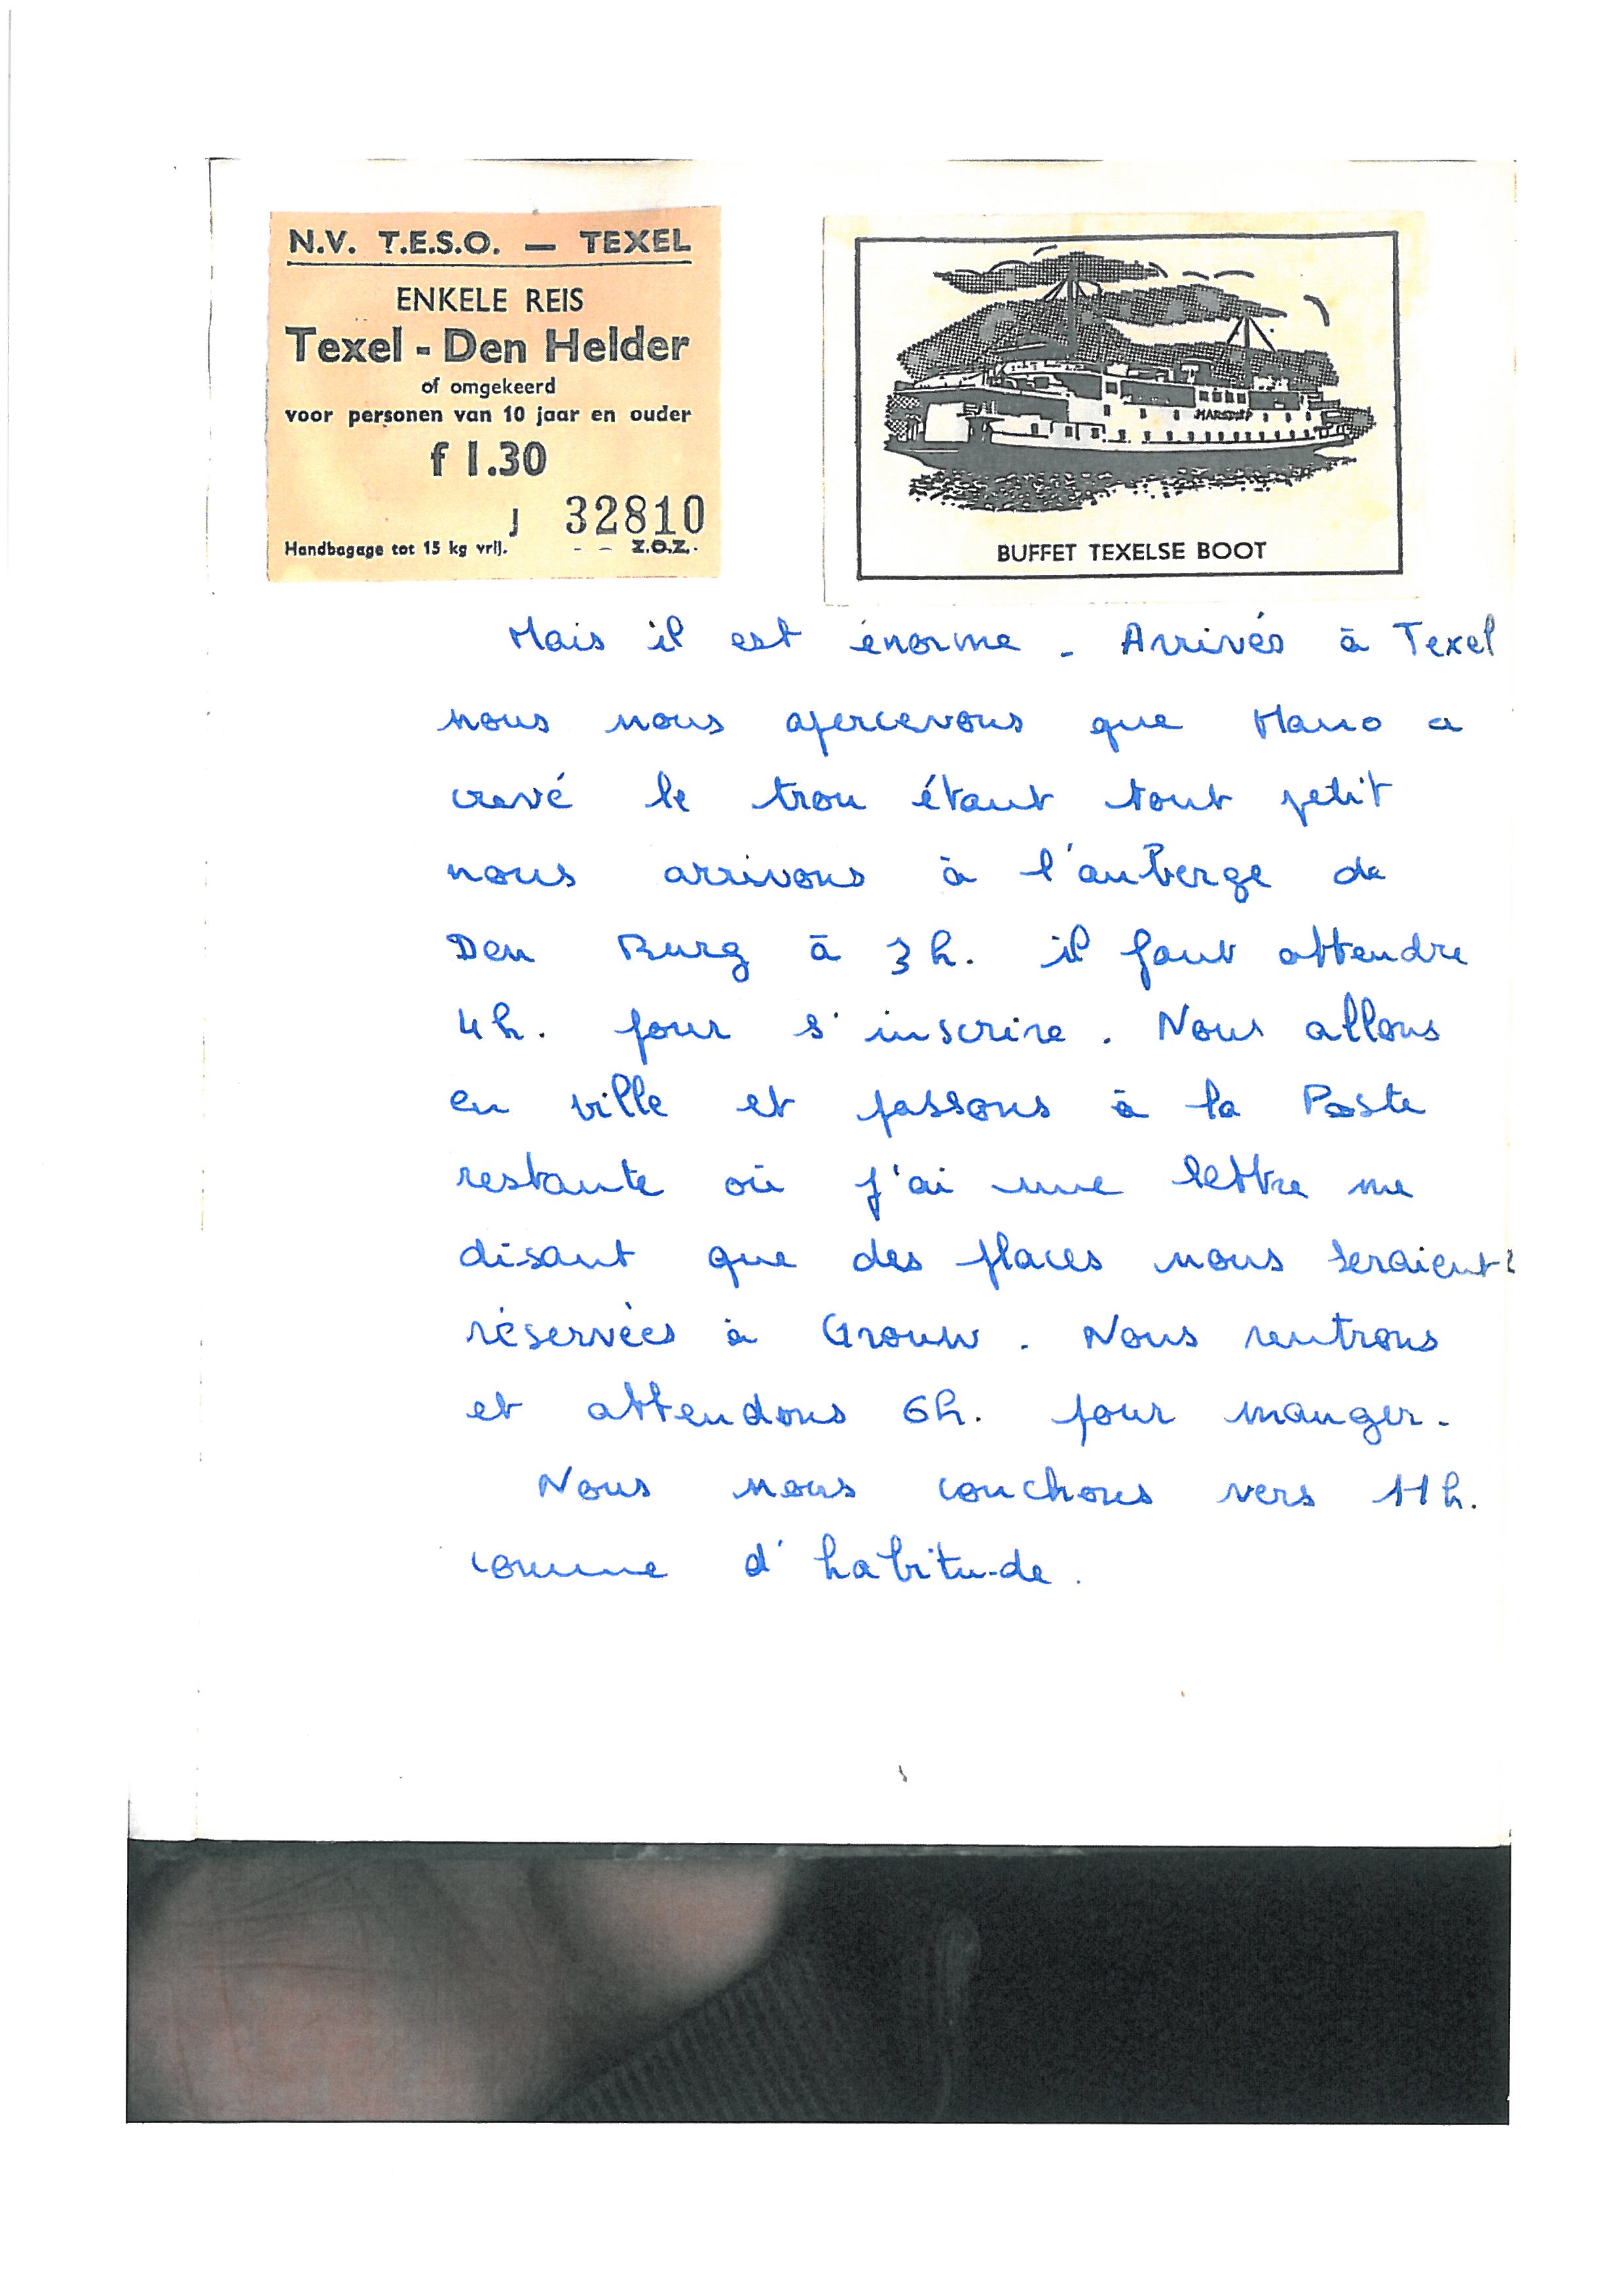 N.V. T.E.S.O. — TEXEL
ENKELE REIS
Texel - Den Helder
of omgekeerd
voor personen van 10 jaar en ouder
f 1.30
J 32810
Handbagage tot 15 kg vrij. - - Z.O.Z.
MARSDIEP
BUFFET TEXELSE BOOT
Mais il est énorme - Arrivés à Texel
nous nous apercevons que Mano a
crevé le trou étant tout petit
nous arrivons à l'auberge de
Den Burg à 3h. il faut attendre
4h. pour s'inscrire. Nous allons
en ville et passons à la Poste
restante où j'ai une lettre me
disant que des places nous seraient
réservées à Grouw. Nous rentrons
et attendons 6h. pour manger.
Nous nous couchons vers 11h.
comme d'habitude.